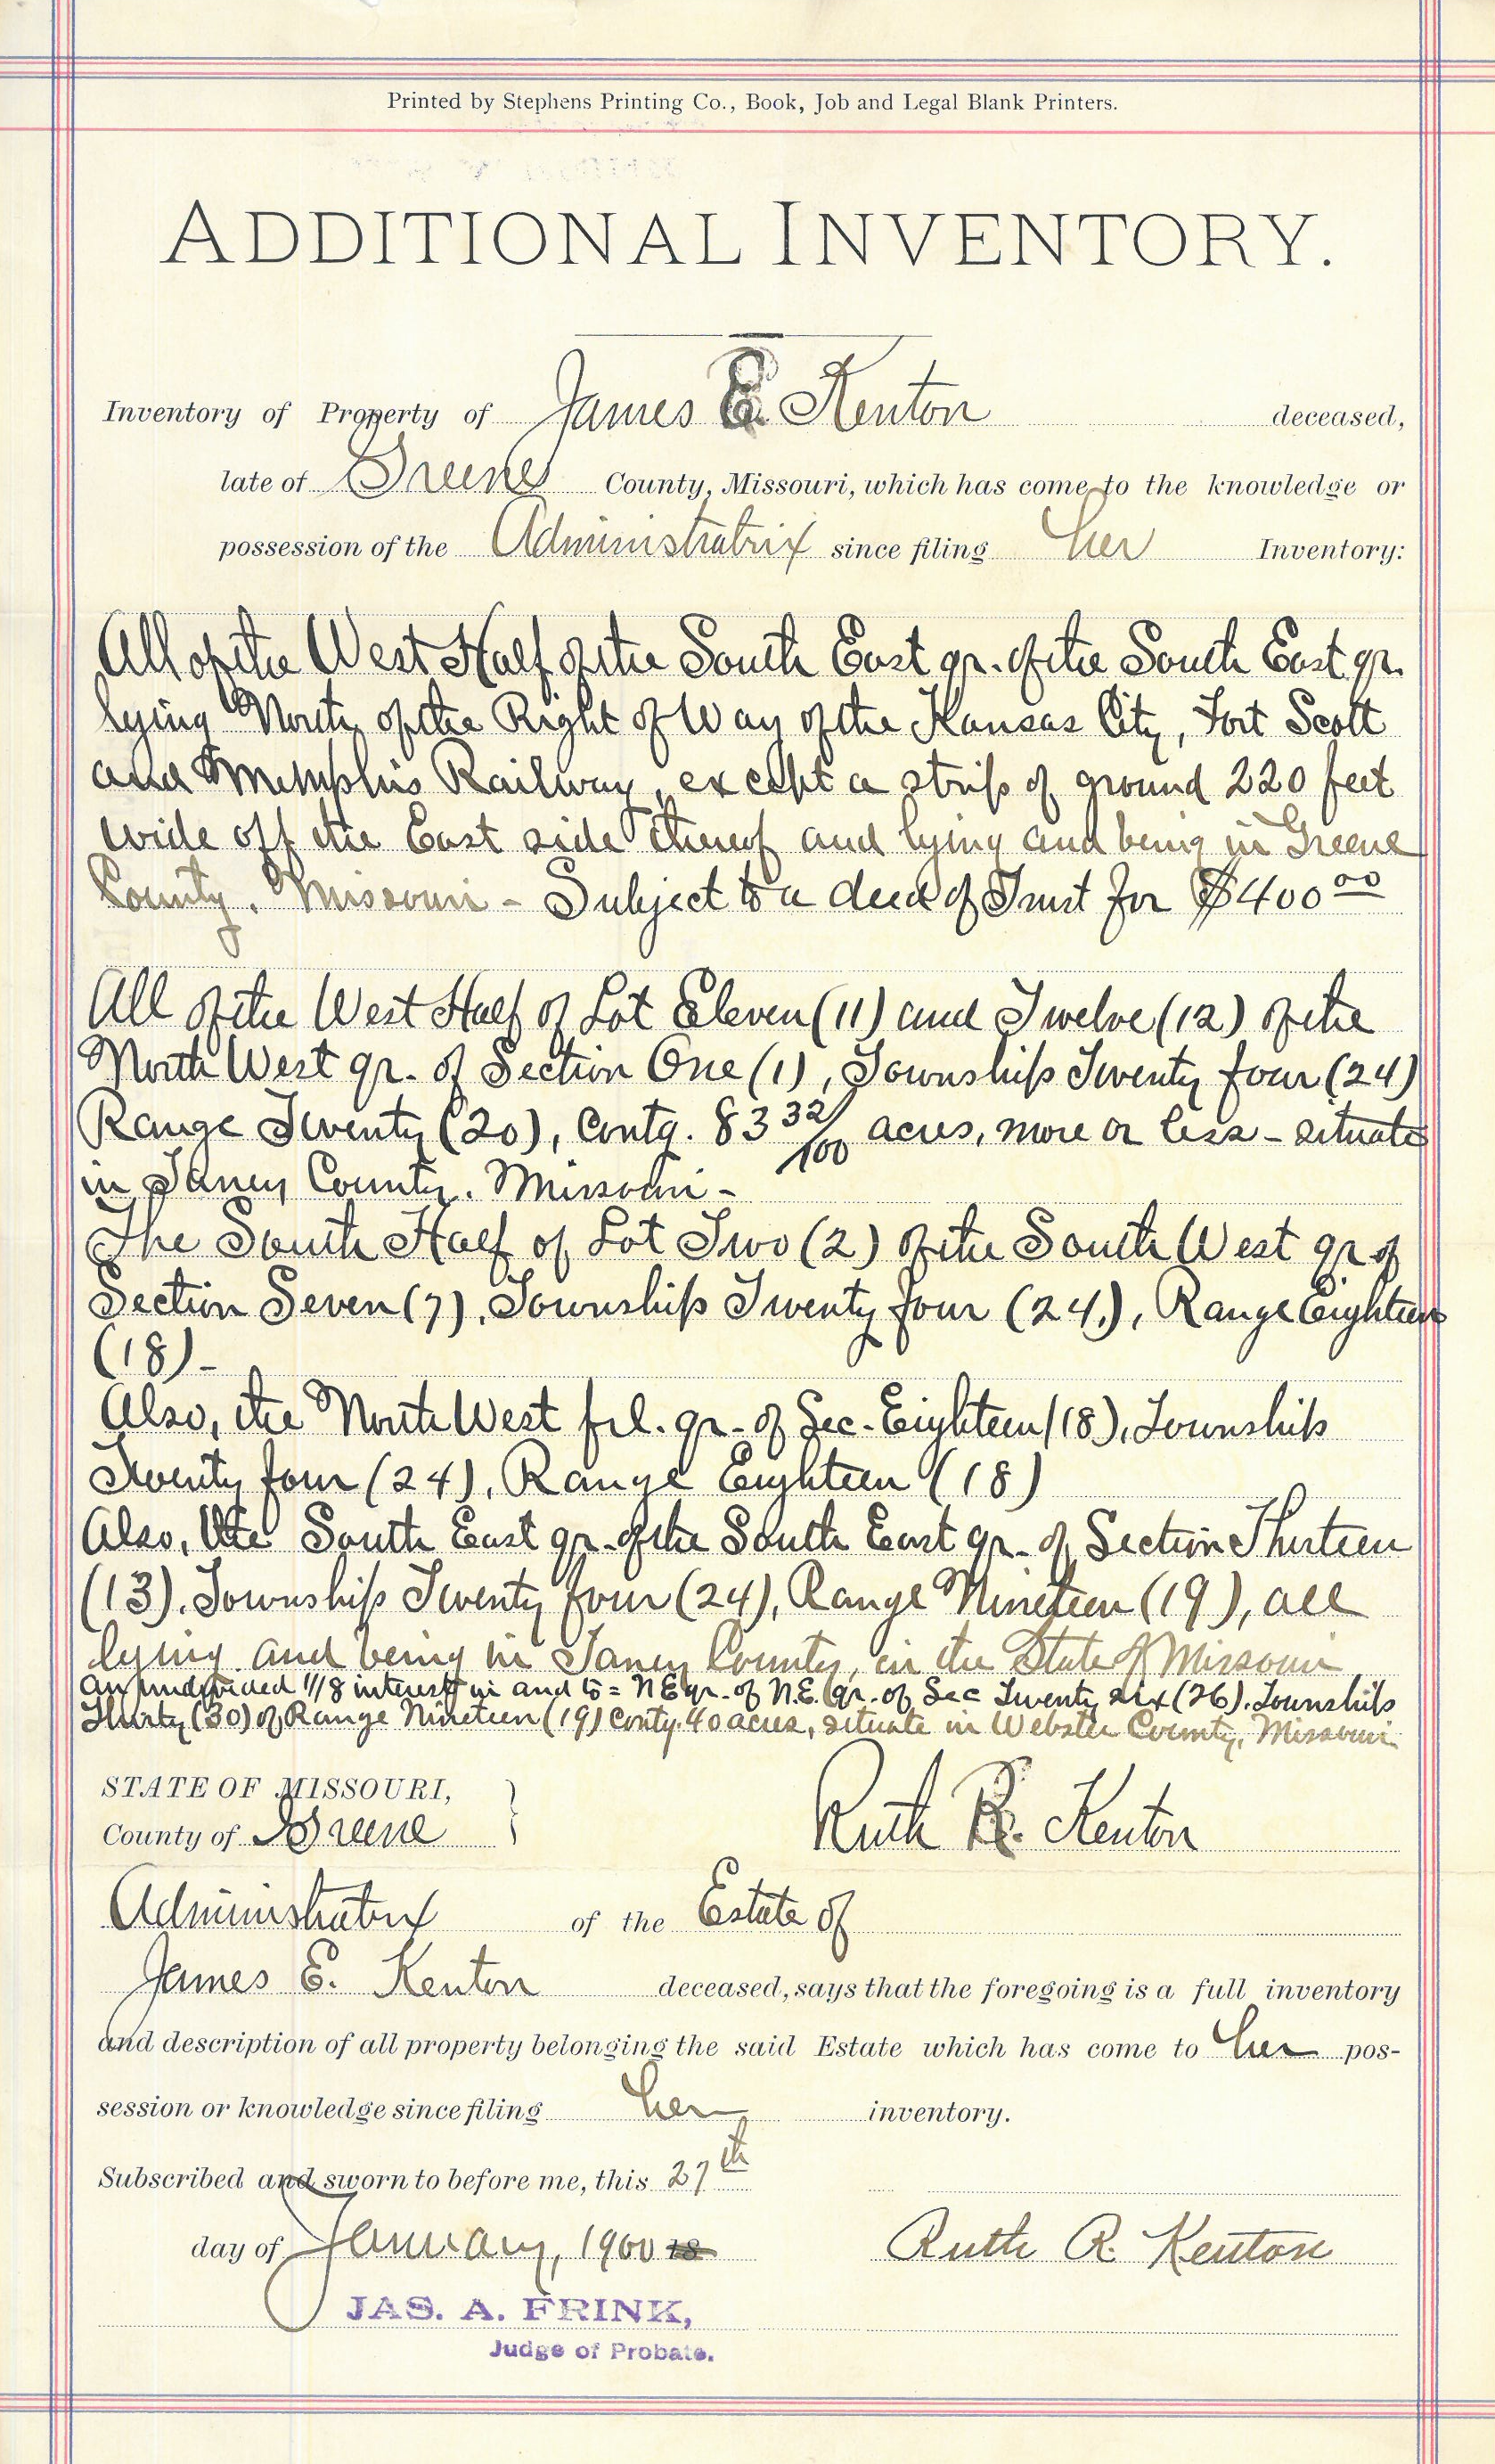 Printed by Stephens Printing Co., Book, Job and Legal Blank Printers.
ADDITIONAL INVENTORY.
Inventory of Property of James E. Kenton deceased,
late of Greene County, Missouri, which has come to the knowledge or
possession of the Administratrix since filing her Inventory:
All of the West Half of the South East qr. of the South East qr.
lying North of the Right of Way of the Kansas City, Fort Scott
and Memphis Railway, except a strip of ground 220 feet
wide off the East side thereof and lying and being in Greene
County, Missouri - Subject to a deed of Trust for $400 00
All of the West Half of Lot Eleven (11) and Twelve (12) of the
North West qr. of Section One (1), Township Twenty four (24)
Range Twenty (20), Contg. 83 32/100 acres, more or less - situate
in Taney County, Missouri -
The South Half of Lot Two (2) of the South West qr of
Section Seven (7), Township Twenty four (24), Range Eighteen
(18) -
Also, the North West frl. qr. of Sec. Eighteen (18), Township
Twenty four (24), Range Eighteen (18)
Also, the South East qr. of the South East qr. of Section Thirteen
(13), Township Twenty four (24), Range Nineteen (19), all
lying and being in Taney County, in the State of Missouri
An undivided 1/8 interest in and to = N E qr. of N.E. qr. of Sec Twenty six (26), Township
Thirty (30) of Range Nineteen (19) contg. 40 acres, situate in Webster County, Missouri
STATE OF MISSOURI,
County of Greene } Ruth R. Kenton
Administratrix of the Estate of
James E. Kenton deceased, says that the foregoing is a full inventory
and description of all property belonging the said Estate which has come to her pos-
session or knowledge since filing her inventory.
Subscribed and sworn to before me, this 27th
day of January, 1900 18 Ruth R. Kenton
JAS. A. FRINK,
Judge of Probate.